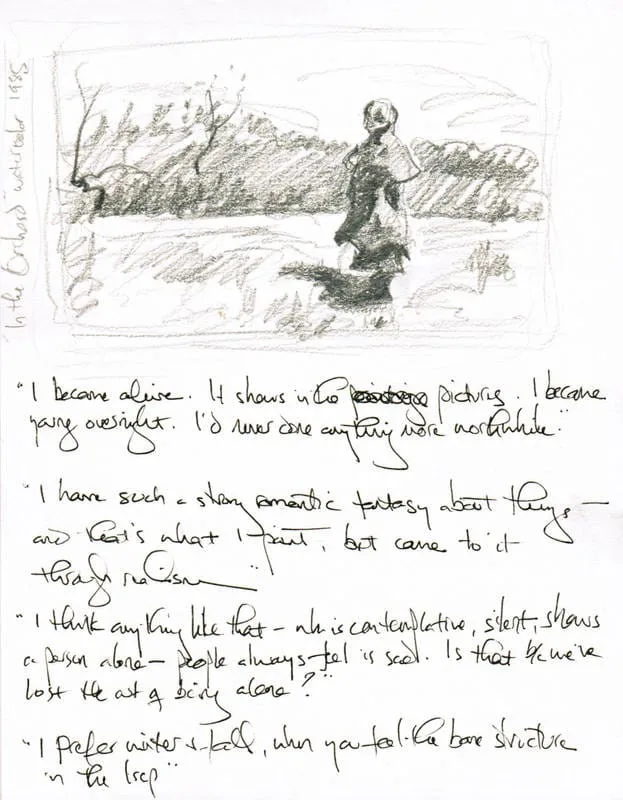 "In the Orchard" watercolor 1985
"I became alive. It shows in the pictures. I became
young overnight. I'd never done anything more worthwhile."
"I have such a strong romantic fantasy about things —
and that's what I paint, but came to it
through realism"
"I think anything like that – wh is contemplative, silent, shows
a person alone – people always feel is sad. Is that b/c we've
lost the art of being alone?"
"I prefer winter & fall, when you feel the bone structure
in the lscp"